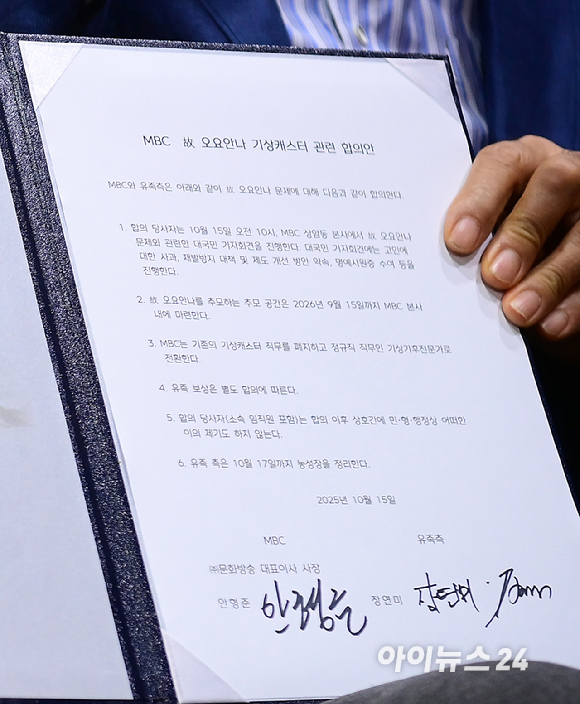 MBC 故 오요안나 기상캐스터 관련 합의안
MBC와 유족측은 아래와 같이 故 오요안나 문제에 대해 다음과 같이 합의한다.
1. 합의 당사자는 10월 15일 오전 10시, MBC 상암동 본사에서 故 오요안나
문제와 관련한 대국민 기자회견을 진행한다. 대국민 기자회견에는 고인에
대한 사과, 재발방지 대책 및 제도 개선 방안 약속, 명예사원증 수여 등을
진행한다.
2. 故 오요안나를 추모하는 추모 공간은 2026년 9월 15일까지 MBC 본사
내에 마련한다.
3. MBC는 기존의 기상캐스터 직무를 폐지하고 정규직 직무인 기상기후전문가로
전환한다.
4. 유족 보상은 별도 합의에 따른다.
5. 합의 당사자(소속 임직원 포함)는 합의 이후 상호간에 민·형·행정상 어떠한
이의 제기도 하지 않는다.
6. 유족 측은 10월 17일까지 농성장을 정리한다.
2025년 10월 15일
MBC 유족측
㈜문화방송 대표이사 사장
안형준 안형준 장연미
아이뉴스24